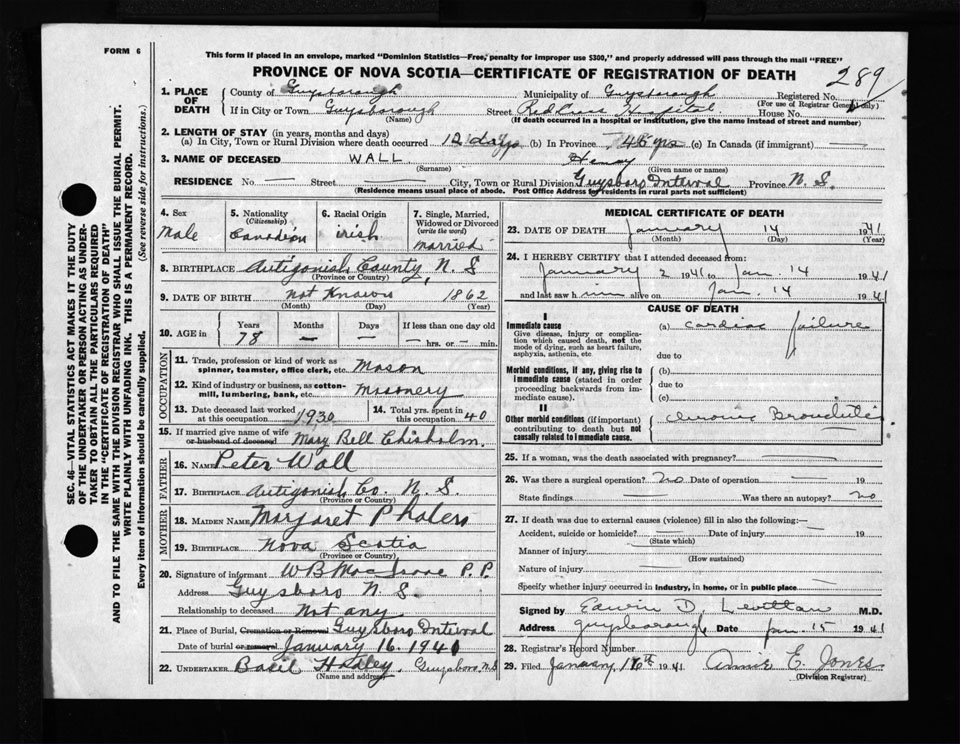 FORM 6
This form if placed in an envelope, marked "Dominion Statistics—Free, penalty for improper use $300," and properly addressed will pass through the mail "FREE"
PROVINCE OF NOVA SCOTIA—CERTIFICATE OF REGISTRATION OF DEATH
289
1. PLACE OF DEATH
County of Guysborough Municipality of Guysborough Registered No.
(For use of Registrar General)
If in City or Town Guysborough Street Red Cross Hospital House No.
(Name) (If death occurred in a hospital or institution, give the name instead of street and number)
2. LENGTH OF STAY (in years, months and days)
(a) In City, Town or Rural Division where death occurred 12 days (b) In Province 45 yrs (c) In Canada (if immigrant) —
3. NAME OF DECEASED WALL Henry
(Surname) (Given name or names)
RESIDENCE No. — Street — City, Town or Rural Division Guysboro Interval Province N. S.
(Residence means usual place of abode. Post Office Address for residents in rural parts not sufficient)
4. Sex Male
5. Nationality (Citizenship) Canadian
6. Racial Origin irish
7. Single, Married, Widowed or Divorced (write the word) married
8. BIRTHPLACE Antigonish County, N. S
(Province or Country)
9. DATE OF BIRTH not Known 1862
(Month) (Day) (Year)
10. AGE in Years 78 Months — Days — If less than one day old — hrs. or — min.
OCCUPATION
11. Trade, profession or kind of work as spinner, teamster, office clerk, etc. Mason
12. Kind of industry or business, as cotton-mill, lumbering, bank, etc. Masonery
13. Date deceased last worked at this occupation 1930
14. Total yrs. spent in this occupation 40
15. If married give name of wife or husband of deceased Mary Bell Chisholm.
FATHER
16. NAME Peter Wall
17. BIRTHPLACE Antigonish Co. N. S.
(Province or Country)
MOTHER
18. MAIDEN NAME Margaret Phalen
19. BIRTHPLACE Nova Scotia
(Province or Country)
20. Signature of informant W B MacIsaac P. P.
Address Guysboro N. S.
Relationship to deceased Not any
21. Place of Burial, Cremation or Removal Guysboro Interval
Date of burial or removal January 16. 1940
22. UNDERTAKER Basil Hadley, Guysboro N.S
(Name and address)
MEDICAL CERTIFICATE OF DEATH
23. DATE OF DEATH January 14 1941
(Month) (Day) (Year)
24. I HEREBY CERTIFY that I attended deceased from:
January 2 1941 to Jan. 14 1941
and last saw him alive on Jan. 14 1941
CAUSE OF DEATH
I
Immediate cause
Give disease, injury or complication which caused death, not the mode of dying, such as heart failure, asphyxia, asthenia, etc
(a) cardiac failure
due to
Morbid conditions, if any, giving rise to immediate cause (stated in order proceeding backwards from immediate cause).
(b)
due to
(c)
II
Other morbid conditions (if important) contributing to death but not causally related to immediate cause.
Chronic Bronchitis
25. If a woman, was the death associated with pregnancy? —
26. Was there a surgical operation? no Date of operation — 19
State findings — Was there an autopsy? no
27. If death was due to external causes (violence) fill in also the following:—
Accident, suicide or homicide? Date of injury 19
(State which)
Manner of injury
(How sustained)
Nature of injury
Specify whether injury occurred in industry, in home, or in public place
Signed by Edwin D. Levittan M.D.
Address guysborough Date Jan. 15 1941
28. Registrar's Record Number
29. Filed January 16th 1941 Annie E. Jones
(Division Registrar)
SEC. 46—VITAL STATISTICS ACT MAKES IT THE DUTY
OF THE UNDERTAKER OR PERSON ACTING AS UNDER-
TAKER TO OBTAIN ALL THE PARTICULARS REQUIRED
IN THE "CERTIFICATE OF REGISTRATION OF DEATH"
AND TO FILE THE SAME WITH THE DIVISION REGISTRAR WHO SHALL ISSUE THE BURIAL PERMIT.
WRITE PLAINLY WITH UNFADING INK. THIS IS A PERMANENT RECORD.
Every item of information should be carefully supplied. (See reverse side for instructions.)